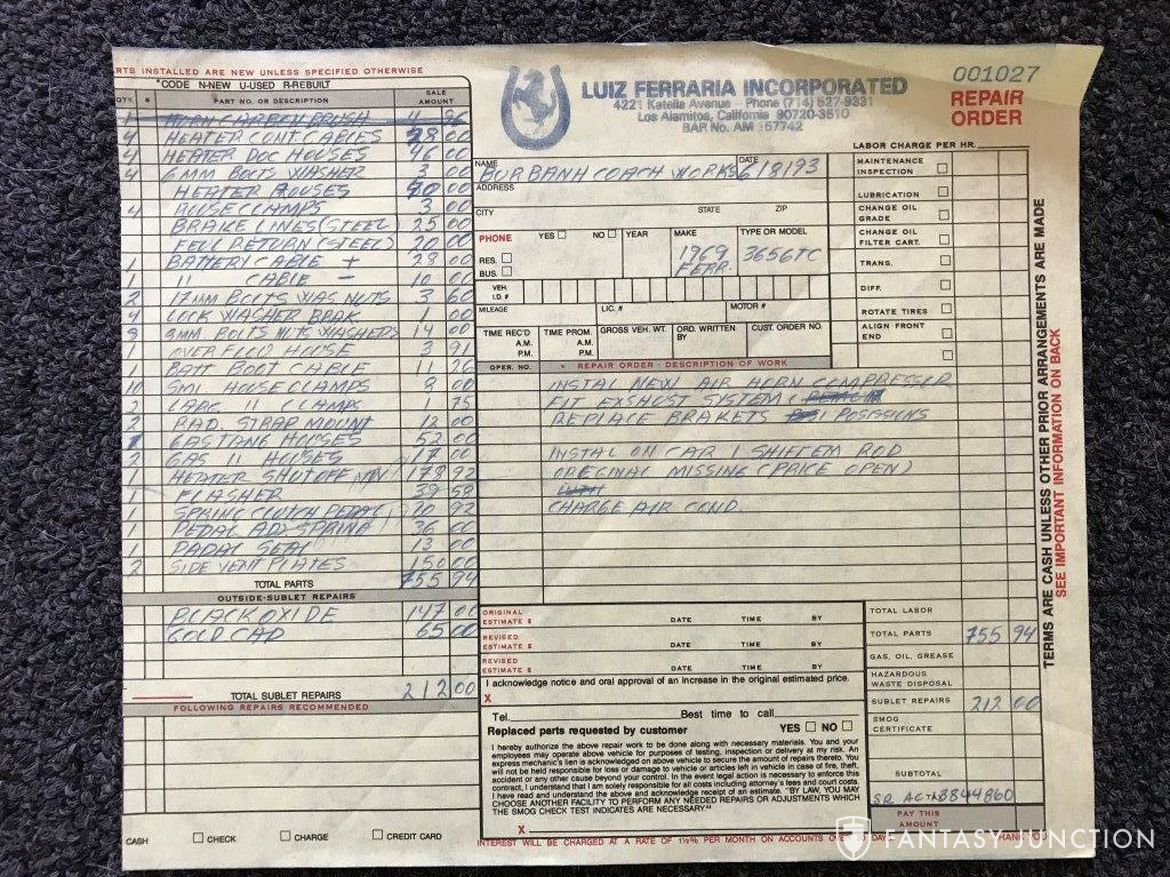 RTS INSTALLED ARE NEW UNLESS SPECIFIED OTHERWISE
*CODE N-NEW U-USED R-REBUILT
QTY. # PART NO. OR DESCRIPTION SALE AMOUNT
1 HORN CARBON BRUSH 4 96
4 HEATER CONT CABLES 28 00
4 HEATER DOC HOUSES 46 00
4 6 MM BOLTS WASHER 3 00
HEATER HOUSES 90 00
4 HOUSE CLAMPS 3 00
BRAKE LINES (STEEL) 25 00
FEUL RETURN (STEEL) 20 00
1 BATTERY CABLE + 28 00
1 " CABLE - 10 00
2 17MM BOLTS WAS NUTS 3 60
4 LOCK WASHER BRAK 1 00
8MM BOLTS NUTS WASHERS 14 00
1 OVERFLOD HOUSE 3 91
1 BATT BOOT CABLE 11 26
10 SML HOUSE CLAMPS 8 00
2 LARG " CLAMPS 1 75
2 RAD. STRAP MOUNT 12 00
GASTANG HOUSES 52 00
2 GAS " HOUSES 17 00
1 HEATER SHUTOFF 178 92
1 FLASHER 39 58
1 SPRING CLUTCH PEDAL 20 92
1 PEDAL ADJ SPRING 36 00
1 PADAL SEAL 13 00
2 SIDE VENT PLATES 150 00
TOTAL PARTS 755 94
OUTSIDE-SUBLET REPAIRS
BLACK OXIDE 147 00
GOLD CAD 65 00
TOTAL SUBLET REPAIRS 212 00
FOLLOWING REPAIRS RECOMMENDED
CASH CHECK CHARGE CREDIT CARD
LUIZ FERRARIA INCORPORATED
4221 Katella Avenue - Phone (714) 827-9331
Los Alamitos, California 90720-3510
BAR No. AM 157742
001027
REPAIR
ORDER
LABOR CHARGE PER HR.
NAME BURBANH COACH WORKS DATE 6/8/93
ADDRESS
CITY STATE ZIP
PHONE YES NO YEAR MAKE TYPE OR MODEL
RES.
BUS.
1969 FERR. 365GTC
VEH. I.D. #
MILEAGE LIC. # MOTOR #
TIME REC'D A.M. P.M. TIME PROM. A.M. P.M. GROSS VEH. WT. ORD. WRITTEN BY CUST. ORDER NO.
MAINTENANCE INSPECTION
LUBRICATION
CHANGE OIL GRADE
CHANGE OIL FILTER CART.
TRANS.
DIFF.
ROTATE TIRES
ALIGN FRONT END
OPER. NO. REPAIR ORDER - DESCRIPTION OF WORK
INSTAL NEW AIR HERN COMPRESSER
FIT EXSHUST SYSTEM
REPLACE BRAKETS POSASIONS
INSTAL ON CAR 1 SHIFTEM ROD
OREGINAL MISSING (PRICE OPEN)
CHARGE AIR COND.
ORIGINAL ESTIMATE $ DATE TIME BY
REVISED ESTIMATE $ DATE TIME BY
REVISED ESTIMATE $ DATE TIME BY
I acknowledge notice and oral approval of an increase in the original estimated price.
X
Tel. Best time to call
Replaced parts requested by customer YES NO
I hereby authorize the above repair work to be done along with necessary materials. You and your
employees may operate above vehicle for purposes of testing, inspection or delivery at my risk. An
express mechanic's lien is acknowledged on above vehicle to secure the amount of repairs thereto. You
will not be held responsible for loss or damage to vehicle or articles left in vehicle in case of fire, theft,
accident or any other cause beyond your control. In the event legal action is necessary to enforce this
contract, I understand that I am solely responsible for all costs including attorney's fees and court costs.
I have read and understand the above and acknowledge receipt of an estimate. "BY LAW, YOU MAY
CHOOSE ANOTHER FACILITY TO PERFORM ANY NEEDED REPAIRS OR ADJUSTMENTS WHICH
THE SMOG CHECK TEST INDICATES ARE NECESSARY"
X
INTEREST WILL BE CHARGED AT A RATE OF 1½% PER MONTH ON ACCOUNTS OVER DAYS THANK YOU
TOTAL LABOR
TOTAL PARTS 755 94
GAS, OIL, GREASE
HAZARDOUS WASTE DISPOSAL
SUBLET REPAIRS 212 00
SMOG CERTIFICATE
SUBTOTAL
PAY THIS AMOUNT
TERMS ARE CASH UNLESS OTHER PRIOR ARRANGEMENTS ARE MADE
SEE IMPORTANT INFORMATION ON BACK
FANTASY JUNCTION